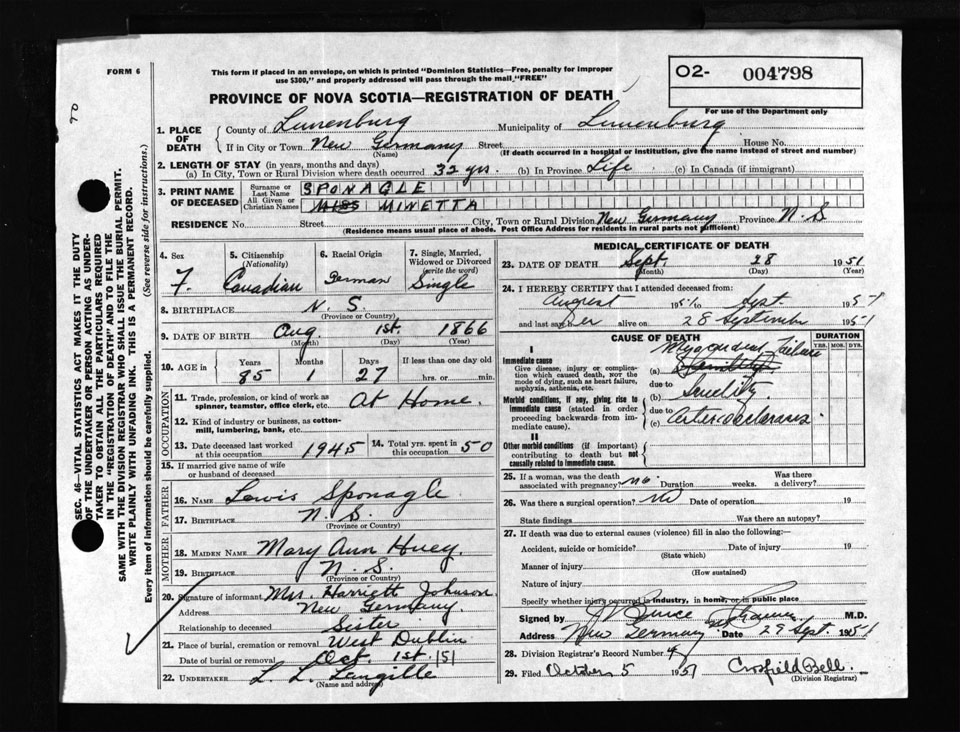 FORM 6
This form if placed in an envelope, on which is printed "Dominion Statistics—Free, penalty for improper
use $300," and properly addressed will pass through the mail "FREE"
O2- 004798
For use of the Department only
PROVINCE OF NOVA SCOTIA—REGISTRATION OF DEATH
1. PLACE OF DEATH
County of Lunenburg Municipality of Lunenburg
If in City or Town New Germany Street House No.
(Name) (If death occurred in a hospital or institution, give the name instead of street and number)
2. LENGTH OF STAY (in years, months and days)
(a) In City, Town or Rural Division where death occurred 32 yrs. (b) In Province Life (c) In Canada (if immigrant)
3. PRINT NAME OF DECEASED
Surname or Last Name SPONAGLE
All Given or Christian Names MISS MINETTA
RESIDENCE No. Street City, Town or Rural Division New Germany Province N.S
(Residence means usual place of abode. Post Office Address for residents in rural parts not sufficient)
4. Sex F.
5. Citizenship (Nationality) Canadian
6. Racial Origin German
7. Single, Married, Widowed or Divorced (write the word) Single
8. BIRTHPLACE N.S.
(Province or Country)
9. DATE OF BIRTH Aug. 1st. 1866
(Month) (Day) (Year)
10. AGE in Years Months Days If less than one day old
85 1 27 hrs. or min.
11. Trade, profession, or kind of work as spinner, teamster, office clerk, etc. At Home.
12. Kind of industry or business, as cotton-mill, lumbering, bank, etc.
13. Date deceased last worked at this occupation 1945 14. Total yrs. spent in this occupation 50
15. If married give name of wife or husband of deceased
FATHER
16. NAME Lewis Sponagle
17. BIRTHPLACE N.S.
(Province or Country)
MOTHER
18. MAIDEN NAME Mary Ann Huey.
19. BIRTHPLACE N.S.
(Province or Country)
20. Signature of informant Mrs. Harriett Johnson.
Address New Germany.
Relationship to deceased Sister
21. Place of burial, cremation or removal West Dublin
Date of burial or removal Oct. 1st. 51
22. UNDERTAKER L. L. Langille
(Name and address)
MEDICAL CERTIFICATE OF DEATH
23. DATE OF DEATH Sept 28 1951
(Month) (Day) (Year)
24. I HEREBY CERTIFY that I attended deceased from:
August 1951 to Sept 1951
and last saw her alive on 28 September 1951
CAUSE OF DEATH DURATION
YRS. MOS. DYS.
I
Immediate cause
Give disease, injury or complication which caused death, not the mode of dying, such as heart failure, asphyxia, asthenia, etc.
(a) Myocardial Failure
due to
Morbid conditions, if any, giving rise to immediate cause (stated in order proceeding backwards from immediate cause).
(b) Senility.
due to
(c) Arteriosclerosis
II
Other morbid conditions (if important) contributing to death but not causally related to immediate cause.
25. If a woman, was the death associated with pregnancy? no. Duration weeks. Was there a delivery?
26. Was there a surgical operation? No Date of operation 19
State findings Was there an autopsy?
27. If death was due to external causes (violence) fill in also the following:
Accident, suicide or homicide? Date of injury 19
(State which)
Manner of injury
(How sustained)
Nature of injury
Specify whether injury occurred in industry, in home, or in public place
Signed by M.D.
Address New Germany Date 29 Sept. 1951
28. Division Registrar's Record Number
29. Filed October 5 1951 Crofield Bell.
(Division Registrar)
SEC. 46—VITAL STATISTICS ACT MAKES IT THE DUTY
OF THE UNDERTAKER OR PERSON ACTING AS UNDER-
TAKER TO OBTAIN ALL THE PARTICULARS REQUIRED
IN THE "REGISTRATION OF DEATH" AND TO FILE THE
SAME WITH THE DIVISION REGISTRAR WHO SHALL ISSUE THE BURIAL PERMIT.
WRITE PLAINLY WITH UNFADING INK. THIS IS A PERMANENT RECORD.
Every item of information should be carefully supplied. (See reverse side for instructions.)